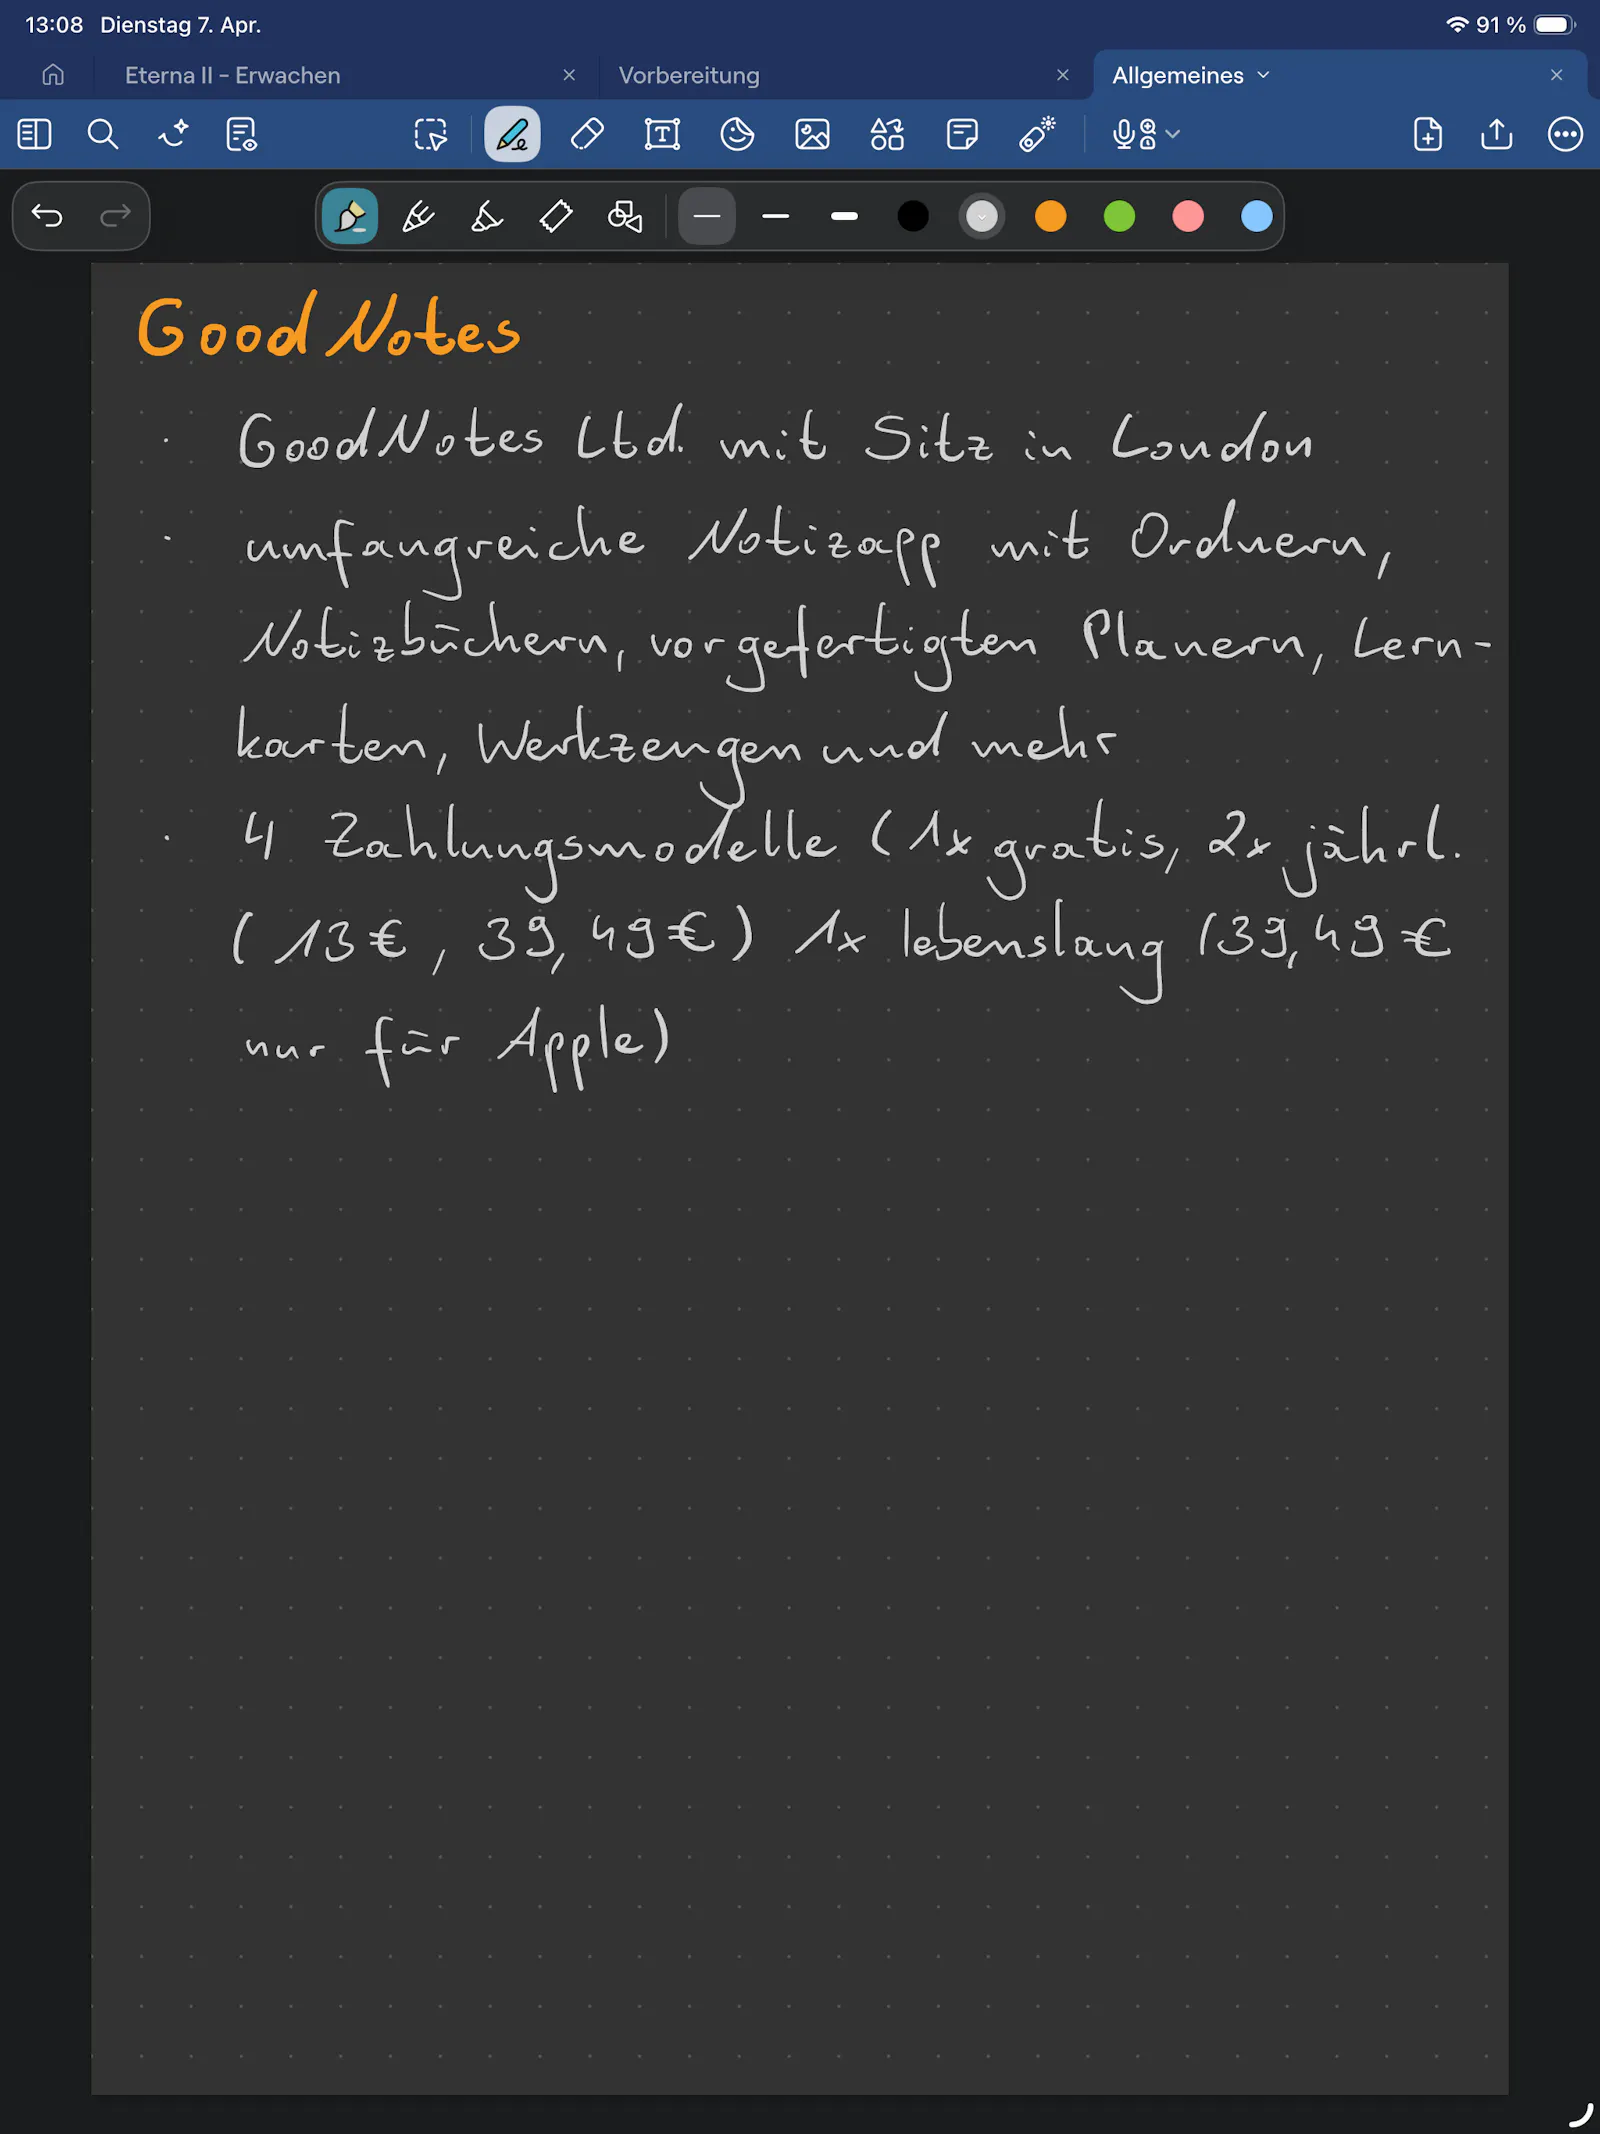 13:08 Dienstag 7. Apr. 91 %
Eterna II – Erwachen Vorbereitung Allgemeines
GoodNotes
· GoodNotes Ltd. mit Sitz in London
· umfangreiche Notizapp mit Ordnern,
Notizbüchern, vorgefertigten Planern, Lern-
karten, Werkzeugen und mehr
· 4 Zahlungsmodelle (1x gratis, 2x jährl.
(13€, 39,49€) 1x lebenslang (39,49€
nur für Apple)